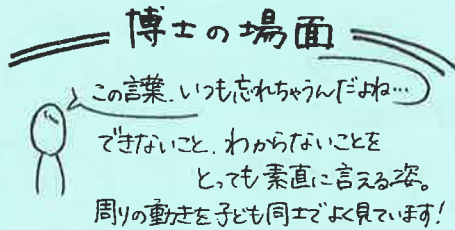 博士の場面
この言葉、いつも忘れちゃうんだよね…
できないこと、わからないことを
とっても素直に言える姿。
周りの動きを子ども同士でよく見ています!